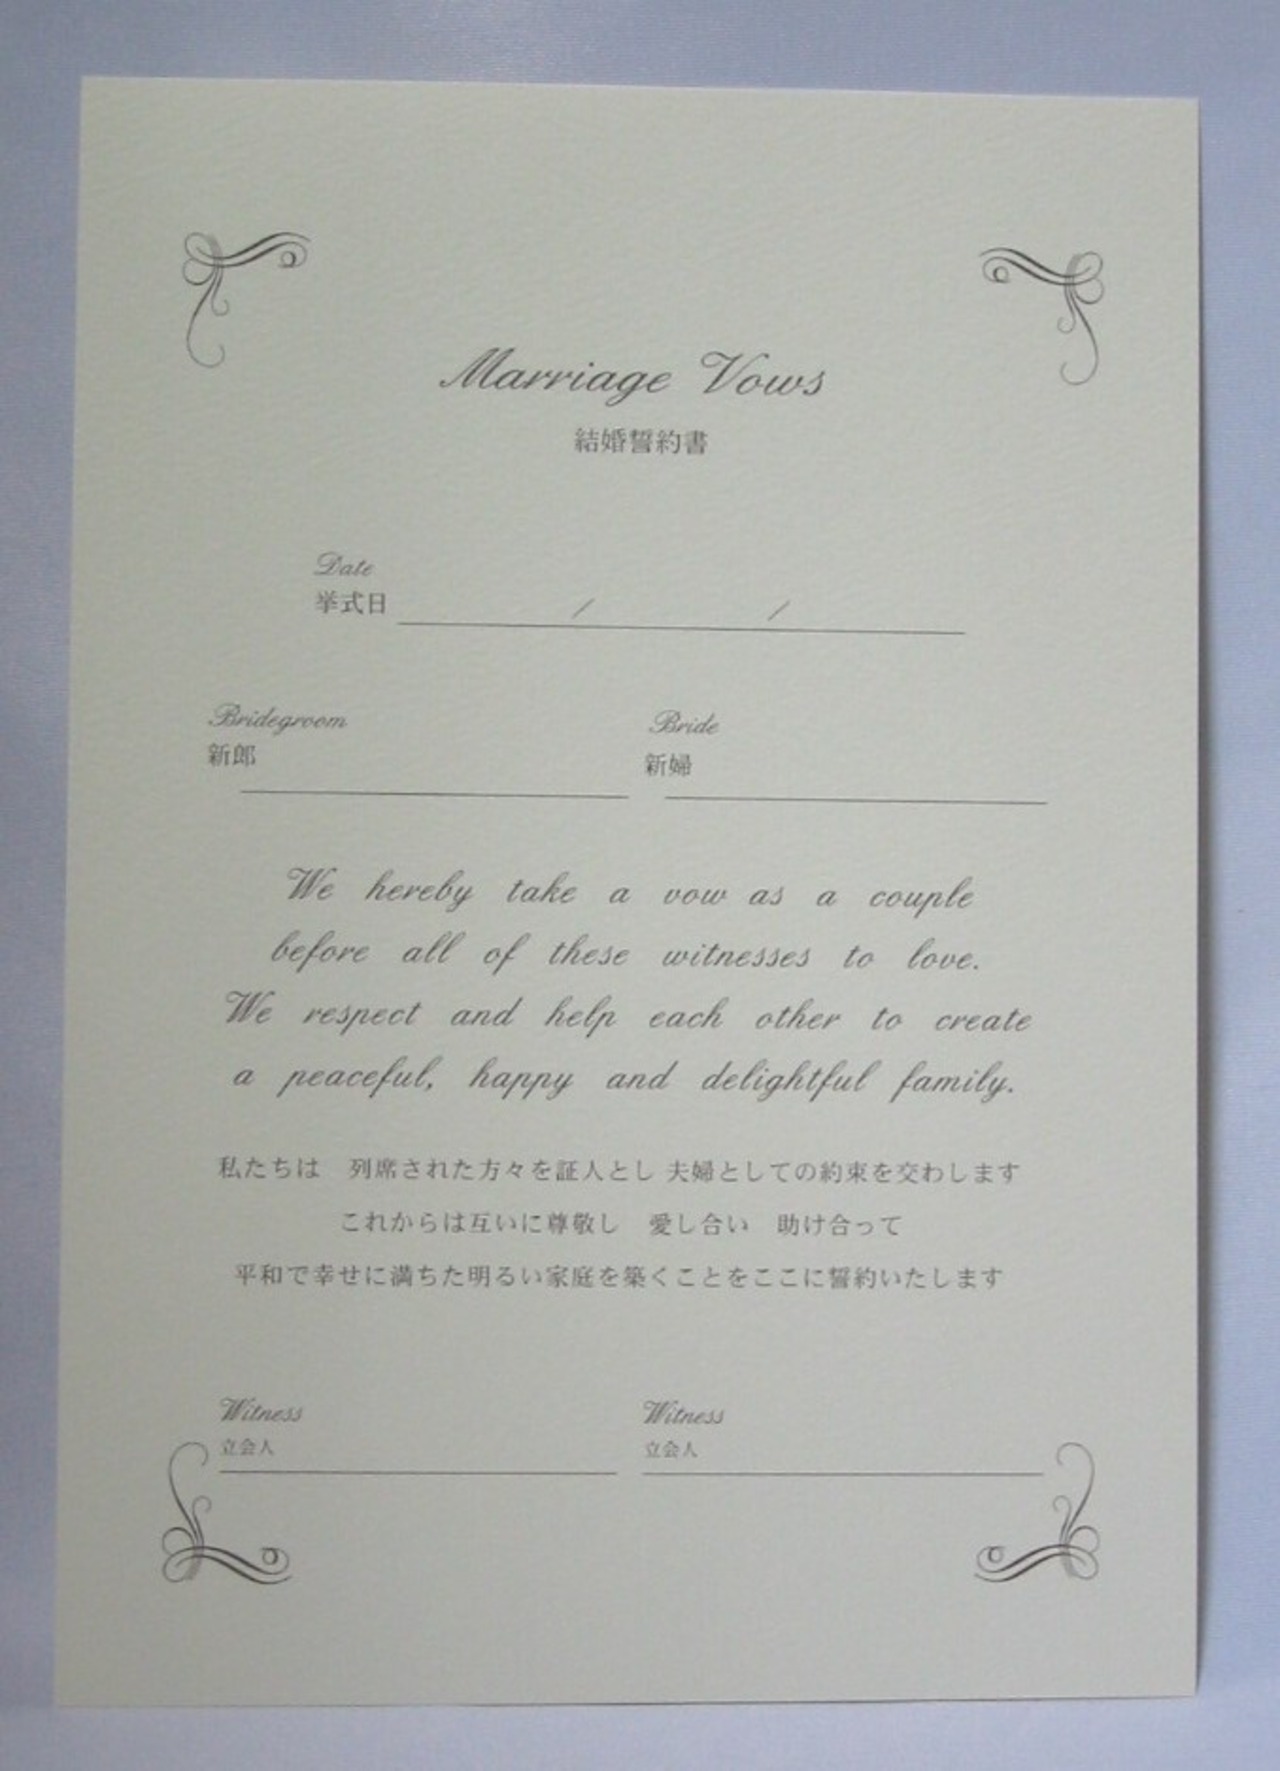 Marriage Vows
結婚誓約書
Date
挙式日 / /
Bridegroom
新郎
Bride
新婦
We hereby take a vow as a couple
before all of these witnesses to love.
We respect and help each other to create
a peaceful, happy and delightful family.
私たちは　列席された方々を証人とし 夫婦としての約束を交わします
これからは互いに尊敬し　愛し合い　助け合って
平和で幸せに満ちた明るい家庭を築くことをここに誓約いたします
Witness
立会人
Witness
立会人